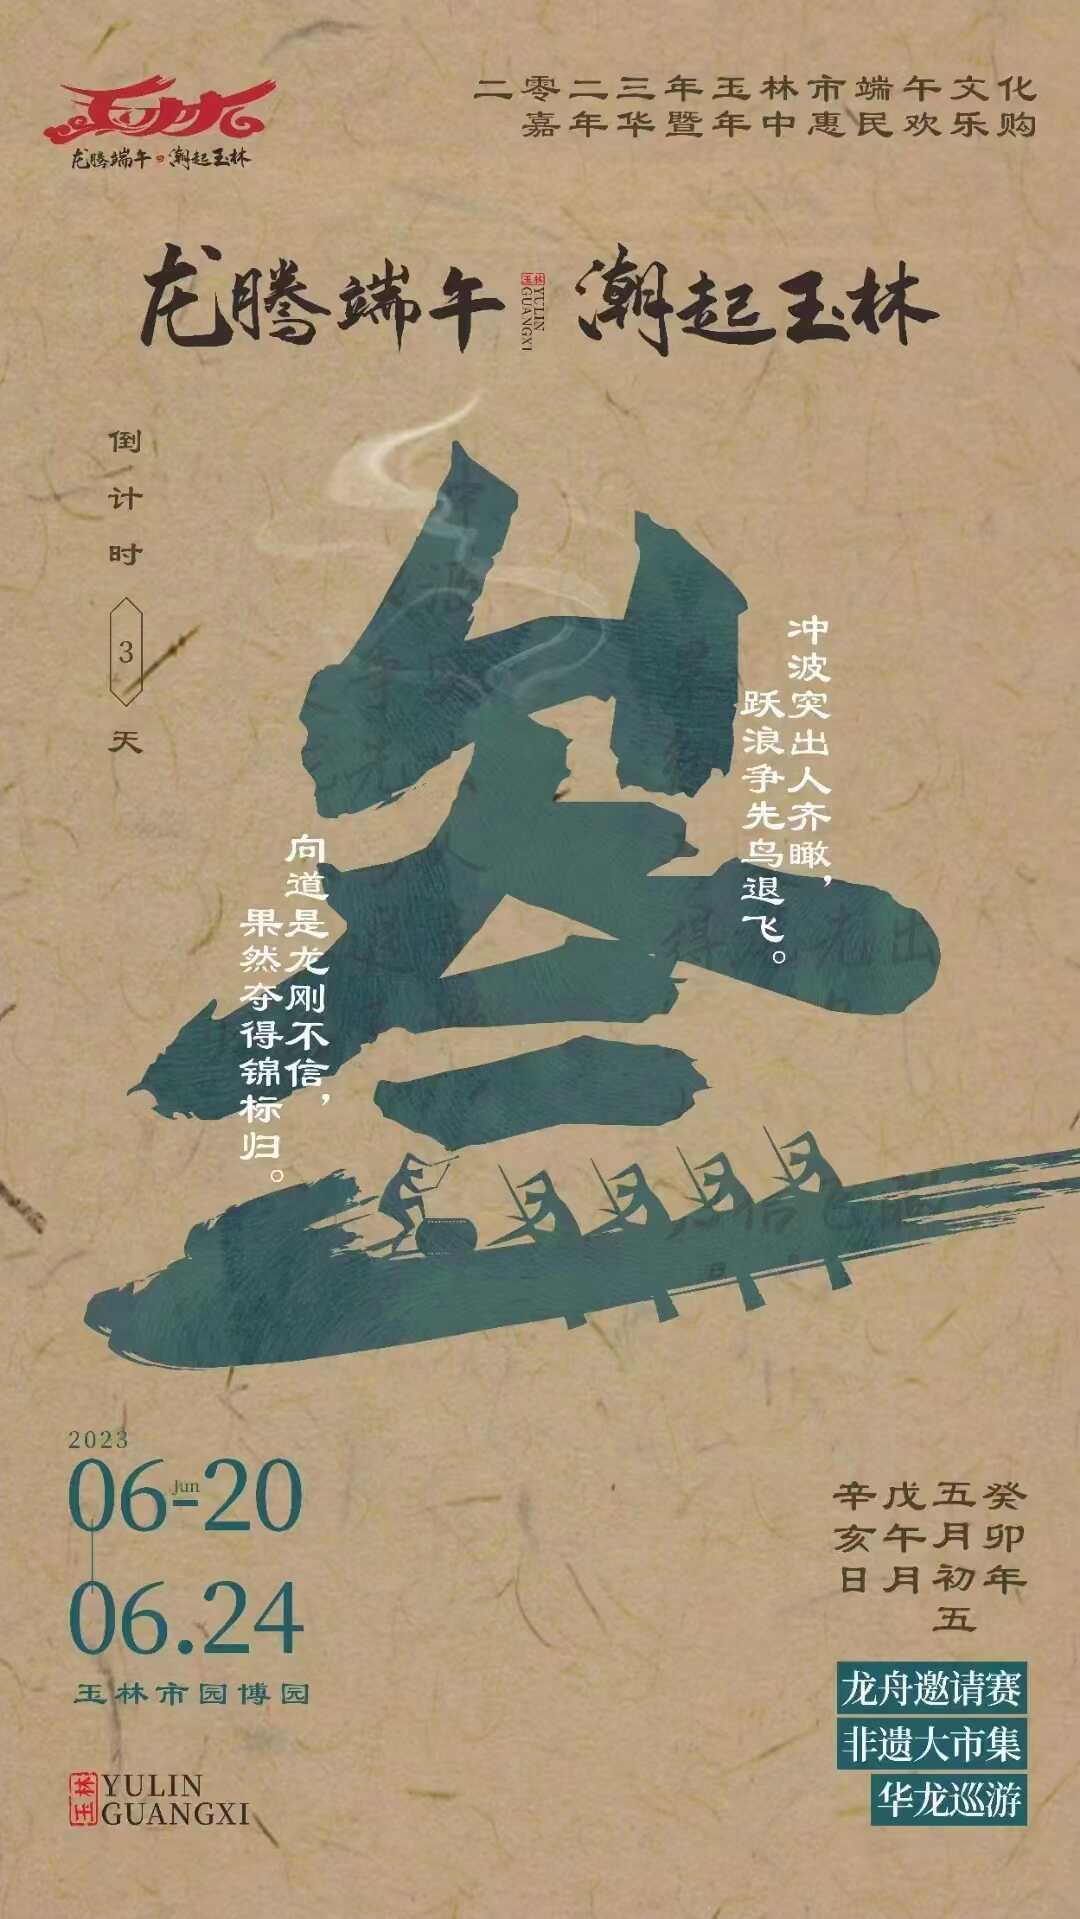 玉林
龙腾端午 潮起玉林
二零二三年玉林市端午文化
嘉年华暨年中惠民欢乐购
龙腾端午
玉林
YULIN
GUANGXI
潮起玉林
倒计时
3
天
冲波突出人齐瞰，
跃浪争先鸟退飞。
向道是龙刚不信，
果然夺得锦标归。
2023
06-20
Jun
06.24
玉林市园博园
玉林
YULIN
GUANGXI
癸卯年
五月初五
戊午月
辛亥日
龙舟邀请赛
非遗大市集
华龙巡游